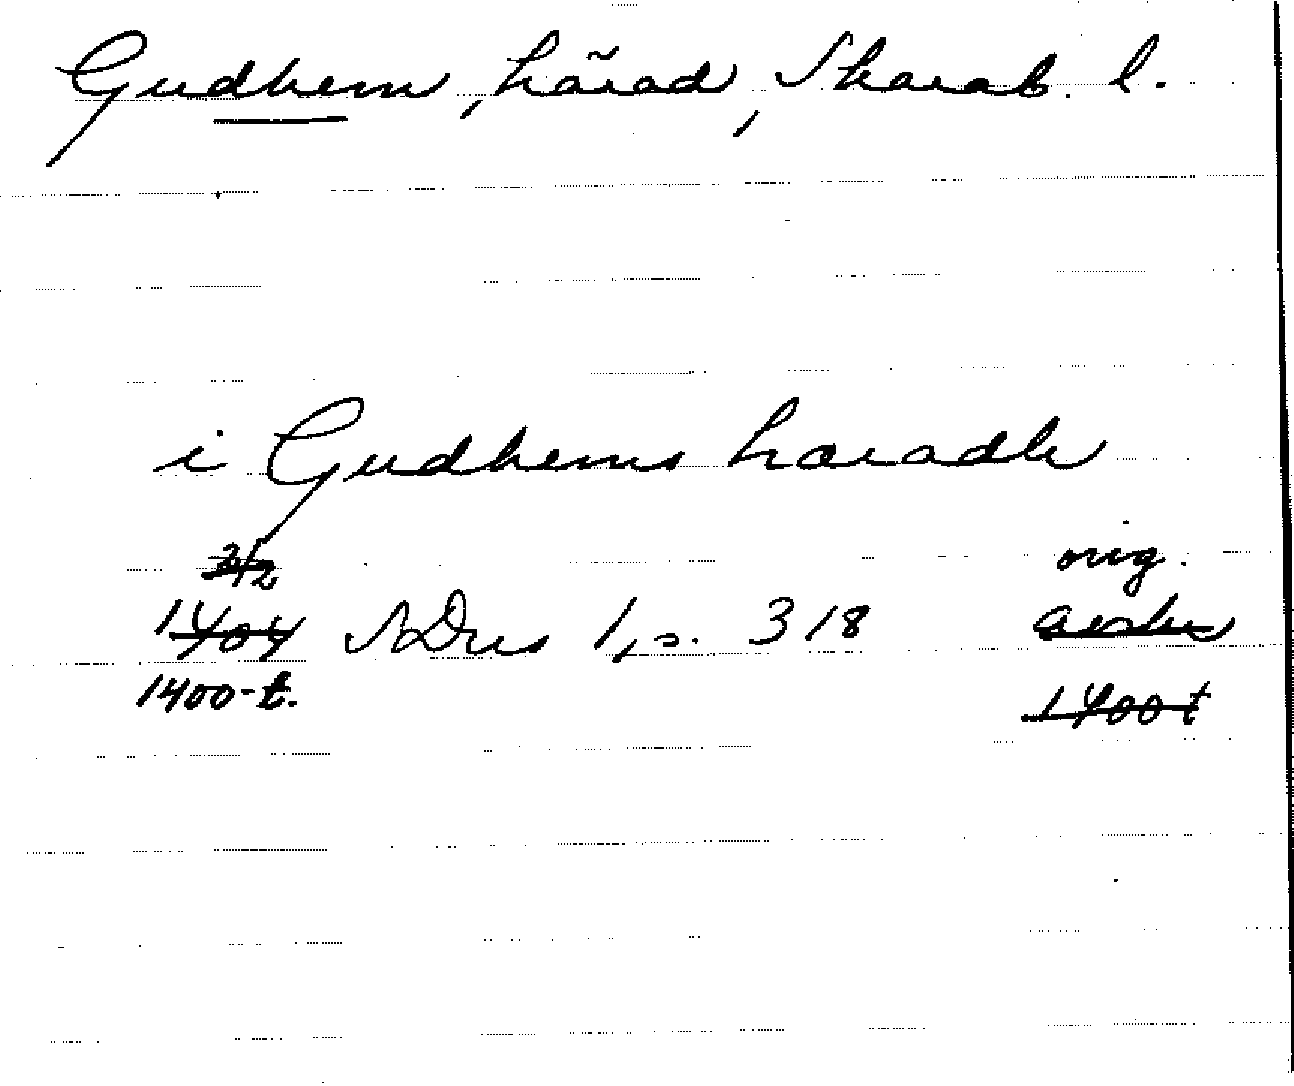 Gudhem, härad, Skarab. l.
i Gudhems haradh
3/2
1404 SDns 1, s. 318 orig.
1400-t. 1400t